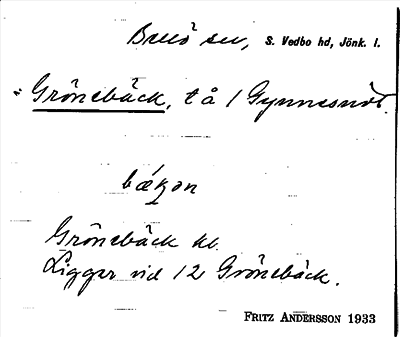 Breeö sn, S. Vedbo hd, Jönk. l.
Grönebäck, t å / Gynnesnöt.
bækən
Grönebäck kl.
Ligger vid 12 Grönebäck.
FRITZ ANDERSSON 1933